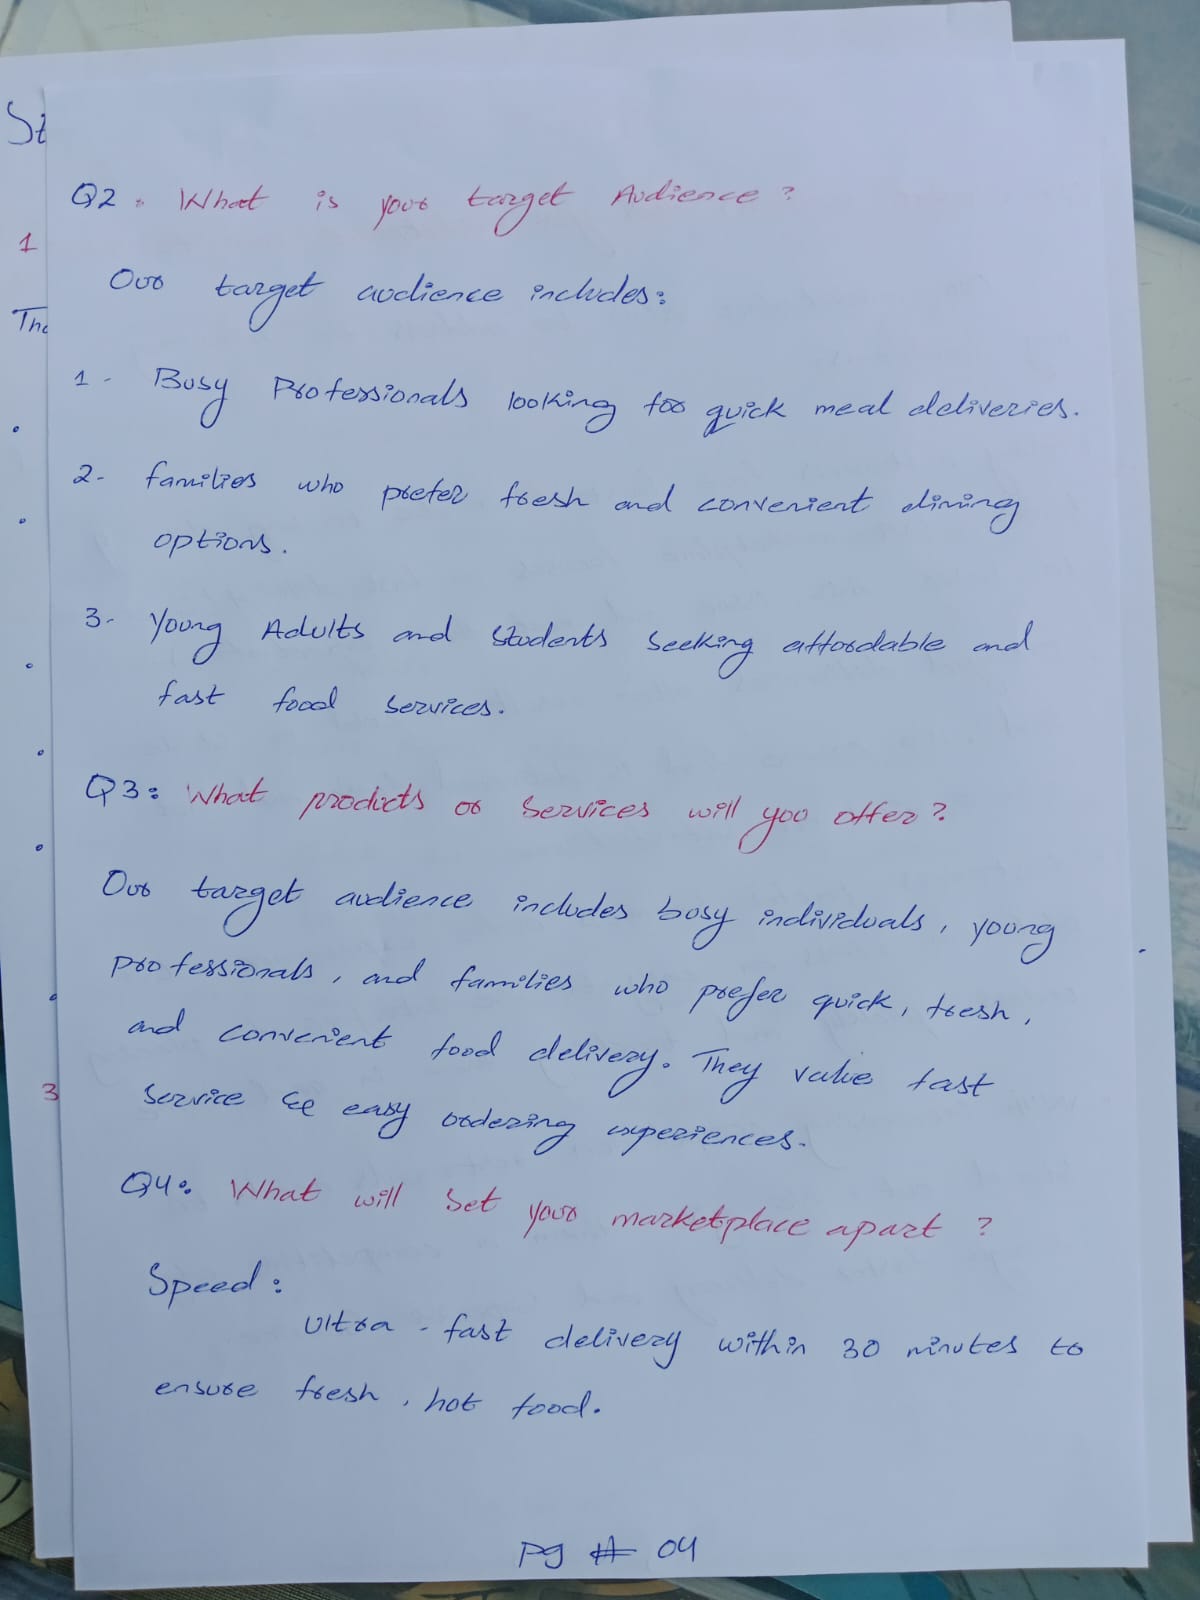 St
Q2. What is your target Audience?
1
Our target audience includes:
1- Busy Professionals looking for quick meal deliveries.
2- families who prefer fresh and convenient dining
options.
3- Young Adults and Students Seeking affordable and
fast food services.
Q3: What products or Services will you offer?
Our target audience includes busy individuals, young
professionals, and families who prefer quick, fresh,
and convenient food delivery. They value fast
3
Service & easy ordering experiences.
Q4: What will Set your marketplace apart?
Speed:
Ultra-fast delivery within 30 minutes to
ensure fresh, hot food.
Pg # 04